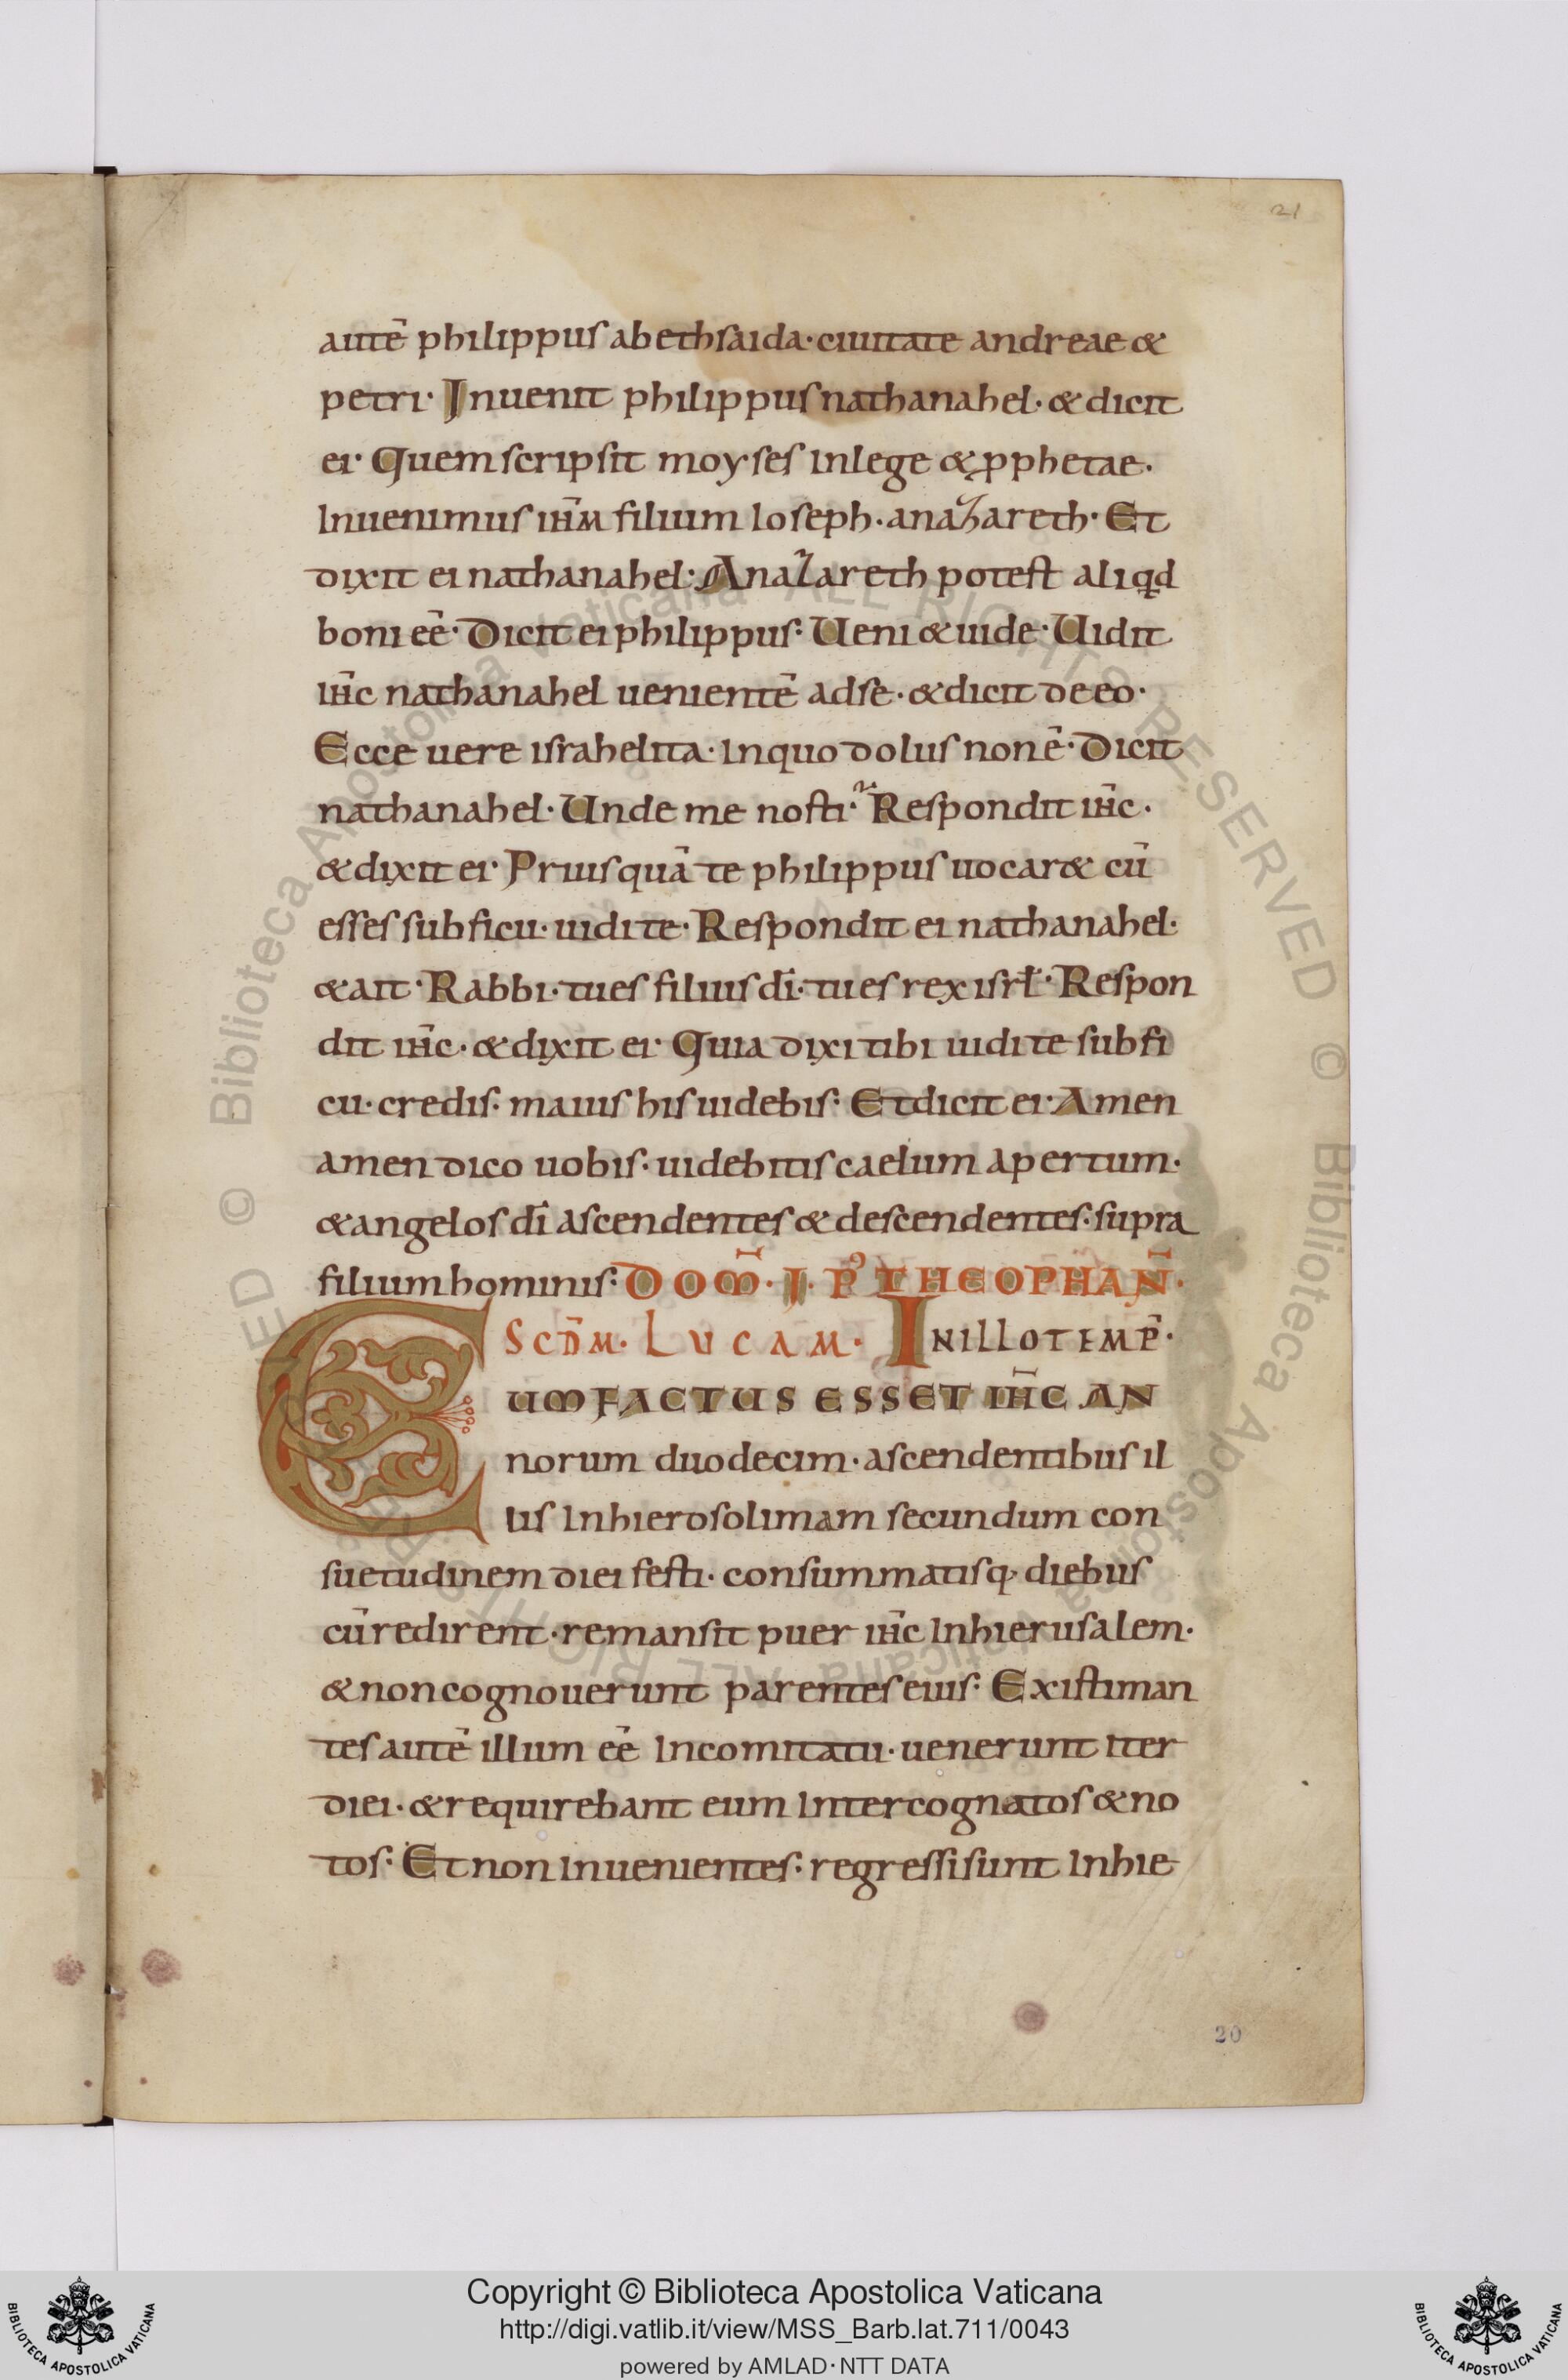 21
autē philippus abethsaida· ciuitate andreae &
petri· Inuenit philippus nathanahel· & dicit
ei· Quem scripsit moyses inlege & pphetae·
Inuenimus ih̄m filium Ioseph· anazareth· Et
dixit ei nathanahel· Anazareth potest aliqd
boni eē· Dicit ei philippus: Ueni & uide· Uidit
ih̄c nathanahel uenientē adse· & dicit deeo·
Ecce uere israhelita· Inquo dolus non ē· Dicit
nathanahel· Unde me nosti· Respondit ih̄c·
& dixit ei· Priusquā te philippus uocar& cū
esses sub ficu· uidi te· Respondit ei nathanahel·
& ait· Rabbi· tu es filius dī· tu es rex isrł· Respon
dit ih̄c· & dixit ei· Quia dixi tibi uidi te sub fi
cu· credis· maius his uidebis: Et dicit ei· Amen
amen dico uobis· uidebitis caelum apertum·
& angelos dī ascendentes & descendentes· supra
filium hominis: DOM̄· I· P' THEOPHAN̄·
SCD̄M· LUCAM· INILLOTEMP̄·
CUM FACTUS ESSET IH̄C AN
norum duodecim· ascendentibus il
lis Inhierosolimam secundum con
suetudinem diei festi· consummatisq· diebus
cū redirent· remansit puer ih̄c Inhierusalem·
& non cognouerunt parentes eius: Existiman
tes autē illum eē Incomitatu· uenerunt iter
diei· & requirebant eum Inter cognatos & no
tos: Et non Inuenientes: regressi sunt Inhie
20
Copyright © Biblioteca Apostolica Vaticana
http://digi.vatlib.it/view/MSS_Barb.lat.711/0043
powered by AMLAD·NTT DATA
BIBLIOTECA APOSTOLICA VATICANA
BIBLIOTECA APOSTOLICA VATICANA